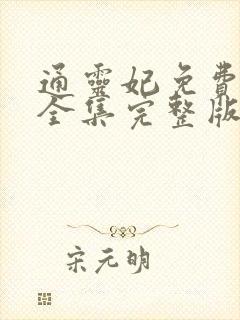 通靈妃免費
全集完整版
宋元明